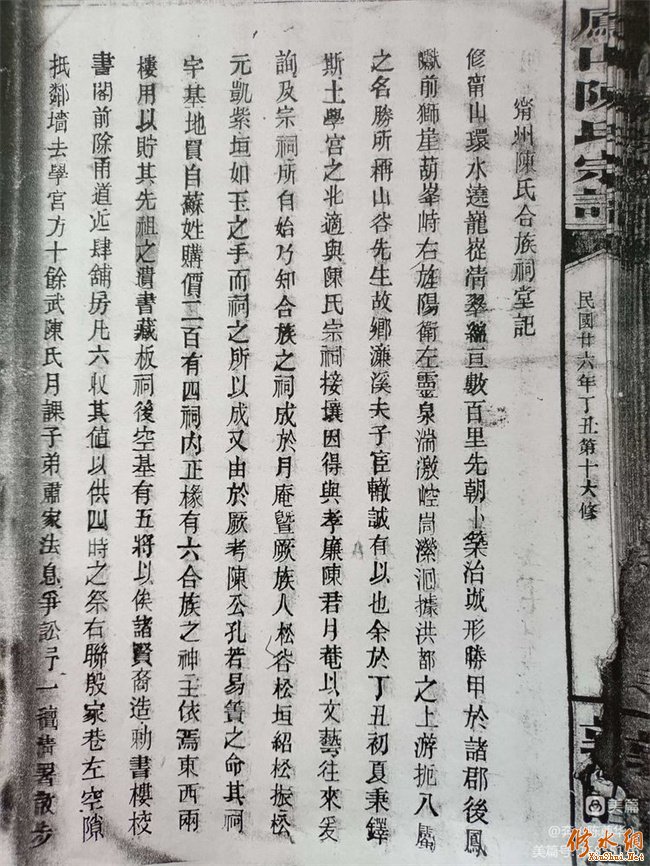 甯州陳氏合族祠堂記
修甯山環水遶龍嵸清翠綿亘數百里先朝卜築治城形勝甲於諸郡後鳳
巘前獅崖葫峯峙右旌陽衛左靈泉湍激崆㟏瀠洄據洪都之上游扼八屬
之名勝所稱山谷先生故鄉濂溪夫子宦轍誠有以也余於丁丑初夏秉鐸
斯土學宮之北適與陳氏宗祠接壤因得與孝廉陳君月菴以文藝往來爰
詢及宗祠所自始乃知合族之祠成於月庵暨厥族人松谷松垣紹松振松
元凱紫垣如玉之手而祠之所以成又由於厥考陳公孔若易簀之命其祠
宇基地買自蘇姓購價二百有四祠內正椽有六合族之神主依焉東西兩
樓用以貯其先祖之遺書藏板祠後空基有五將以俟諸賢裔造勑書樓校
書閣前除甬道近肆舖房凡六收其值以供四時之祭右聯殷家巷左空隙
抵鄰墻去學宮方十餘武陳氏月課子弟肅家法息爭訟一散步
陳氏宗
民國廿六年丁丑第十大修
美篇
美篇
修水網
XiuShui.Net